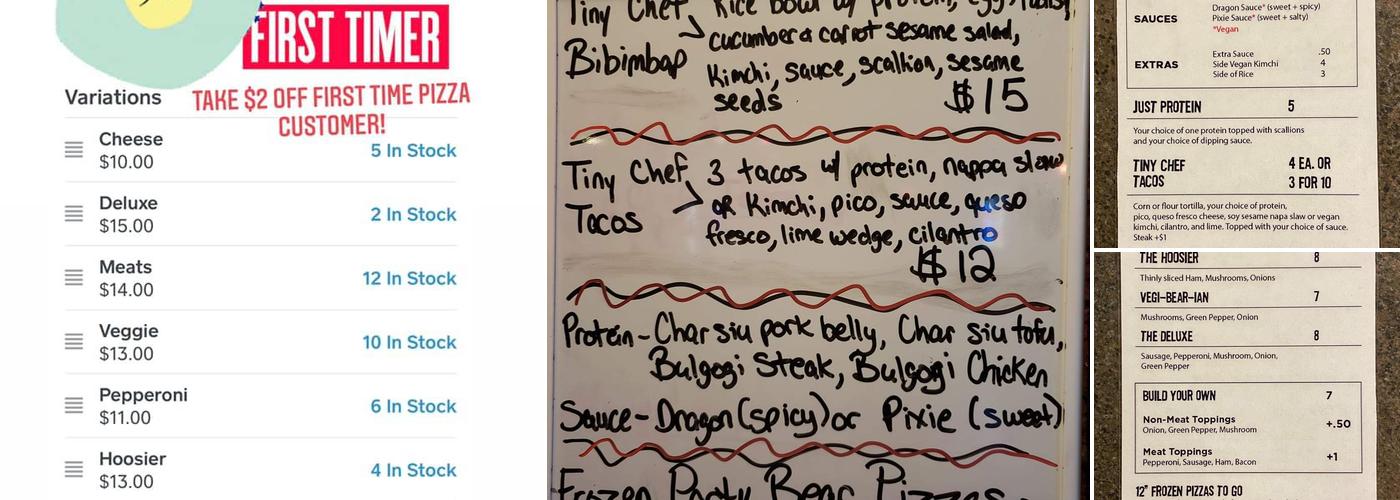 FIRST TIMER
TAKE $2 OFF FIRST TIME PIZZA
CUSTOMER!
Variations
Cheese
$10.00
5 In Stock
Deluxe
$15.00
2 In Stock
Meats
$14.00
12 In Stock
Veggie
$13.00
10 In Stock
Pepperoni
$11.00
6 In Stock
Hoosier
$13.00
4 In Stock
Tiny Chef Rice bowl w/ protein, egg, radish,
Bibimbap cucumber & carrot sesame salad,
Kimchi, sauce, scallion, sesame
seeds $15
Tiny Chef 3 tacos w/ protein, nappa slaw
Tacos or Kimchi, pico, sauce, queso
fresco, lime wedge, cilantro
$12
Protein - Char siu pork belly, Char siu tofu,
Bulgogi Steak, Bulgogi Chicken
Sauce - Dragon (spicy) or Pixie (sweet)
Frozen Party Bear Pizzas
SAUCES
Dragon Sauce* (sweet + spicy)
Pixie Sauce* (sweet + salty)
*Vegan
EXTRAS
Extra Sauce .50
Side Vegan Kimchi 4
Side of Rice 3
JUST PROTEIN 5
Your choice of one protein topped with scallions
and your choice of dipping sauce.
TINY CHEF 4 EA. OR
TACOS 3 FOR 10
Corn or flour tortilla, your choice of protein,
pico, queso fresco cheese, soy sesame napa slaw or vegan
kimchi, cilantro, and lime. Topped with your choice of sauce.
Steak +$1
THE HOOSIER 8
Thinly sliced Ham, Mushrooms, Onions
VEGI-BEAR-IAN 7
Mushrooms, Green Pepper, Onion
THE DELUXE 8
Sausage, Pepperoni, Mushroom, Onion,
Green Pepper
BUILD YOUR OWN 7
Non-Meat Toppings +.50
Onion, Green Pepper, Mushroom
Meat Toppings +1
Pepperoni, Sausage, Ham, Bacon
12" FROZEN PIZZAS TO GO